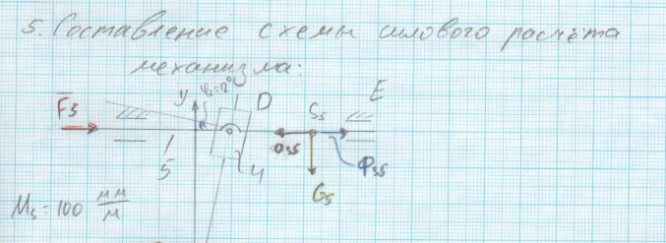 5. Составление схемы силового расчёта
механизма:
y D E
F5 S5
5 4 a55 Ф55
G5
Ms = 100 мм/м